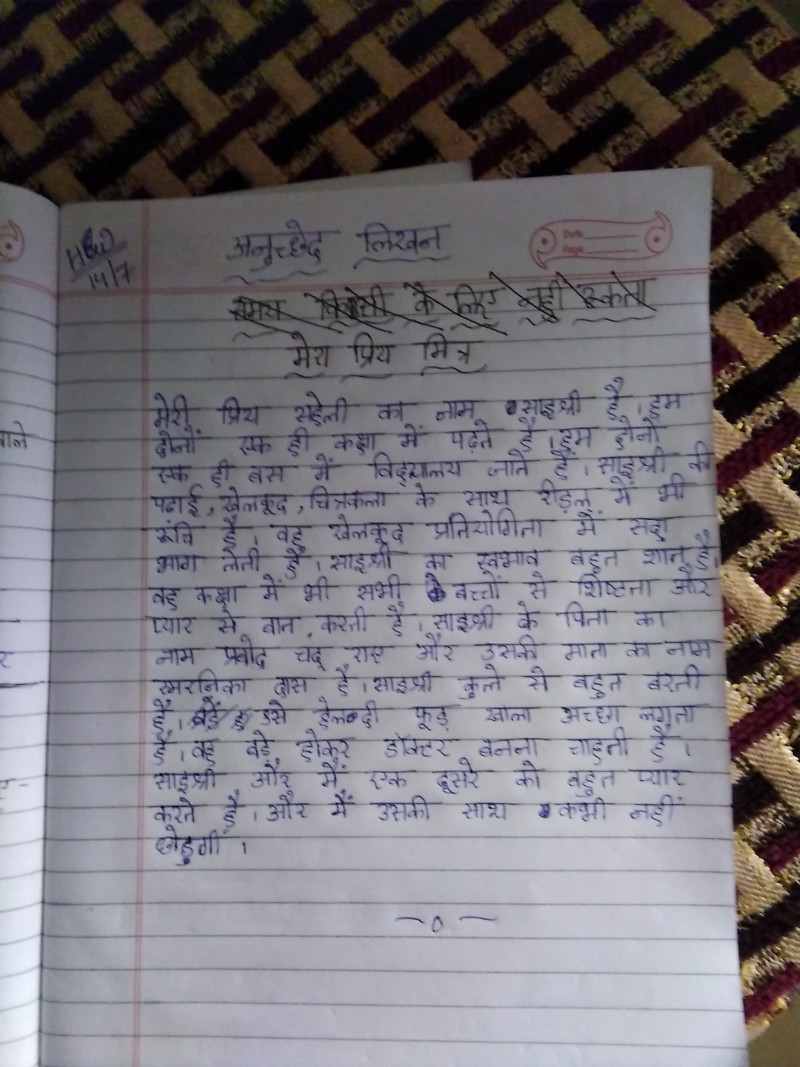 H.W
14/7
अनुच्छेद लिखन
Date
Page
समय किसी के लिए नही रूकता
मेरा प्रिय मित्र
मेरी प्रिय सहेली का नाम साइश्री है। हम
दोनों एक ही कक्षा में पढ़ते है। हम दोनों
एक ही बस में विद्यालय जाते हैं। साइश्री की
पढाई, खेलकूद, चित्रकला के साथ रीड़ल में भी
रुचि है, वह खेलकूद प्रतियोगिता में सदा
भाग लेती है। साइश्री का स्वभाव बहुत शान्त है,
वह कक्षा में भी सभी बच्चों से शिष्टता और
प्यार से बात करती है। साइश्री के पिता का
नाम प्रबोद चद्र राए और उसकी माता का नाम
स्मरनिका दास है। साइश्री कुत्ते से बहुत डरती
है। उसे हेलदी फूड़ खाना अच्छा लगता
है। वह बड़े होकर डॉक्टर बनना चाहती है।
साइश्री और मैं एक दूसरे को बहुत प्यार
करते है। और मैं उसकी साथ कभी नहीं
छोडुगी।
वाले
र